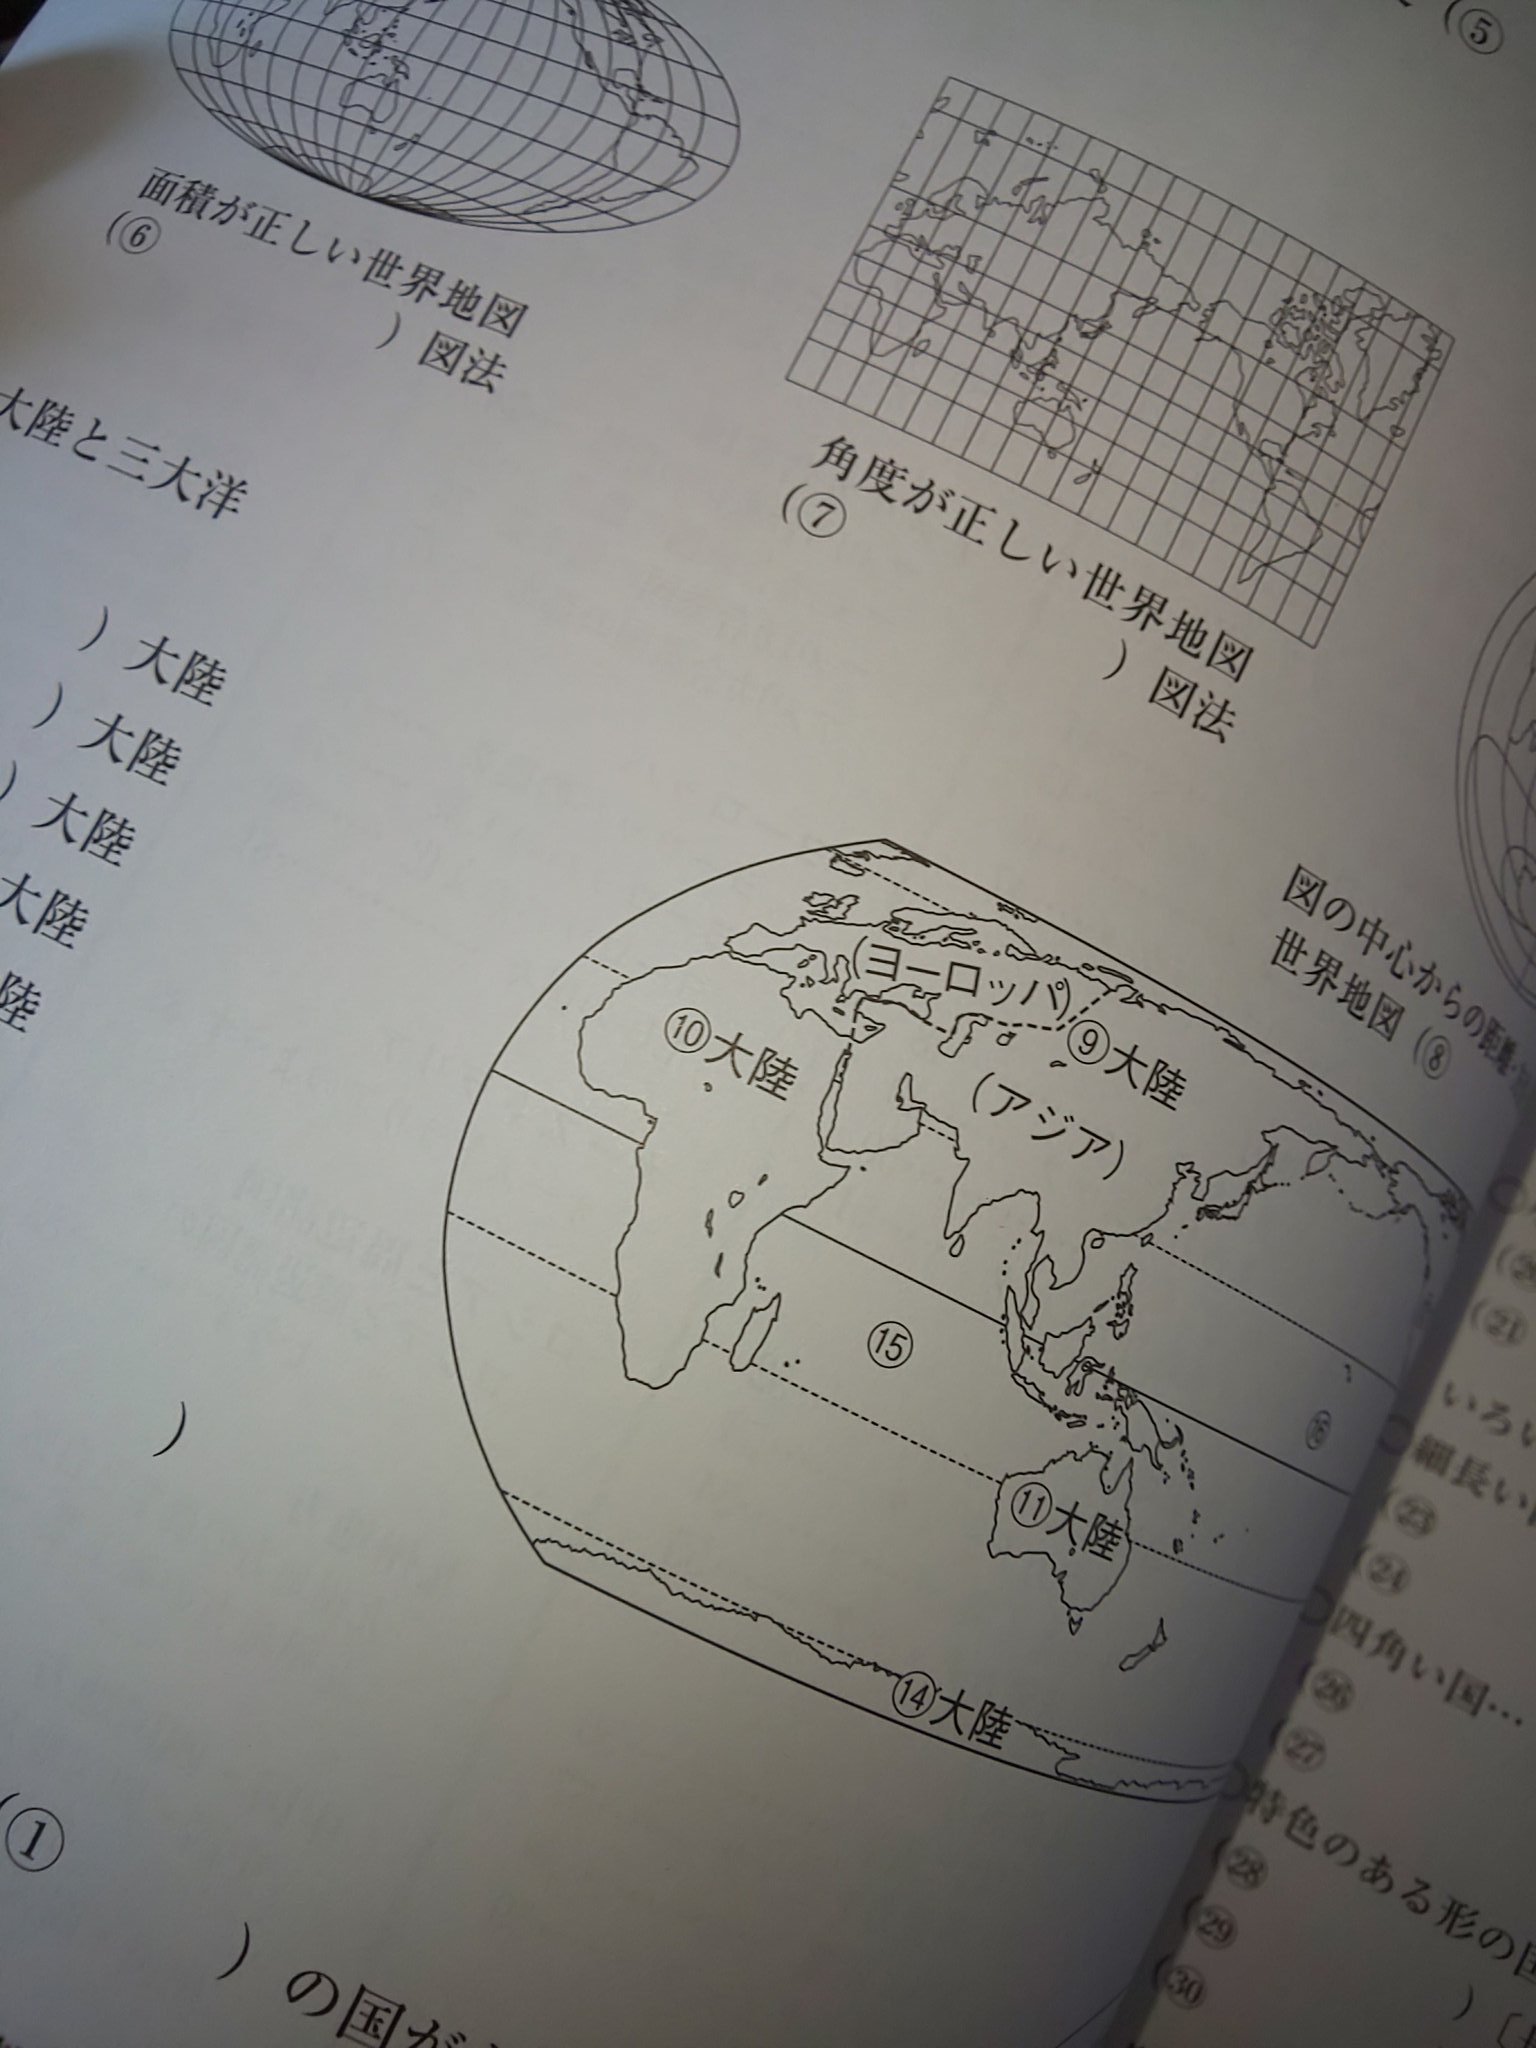 (⑤
面積が正しい世界地図
(⑥
) 図法
角度が正しい世界地図
(⑦
) 図法
大陸と三大洋
) 大陸
) 大陸
) 大陸
大陸
陸
図の中心からの距離
世界地図 (⑧
(ヨーロッパ)
⑨大陸
⑩大陸
(アジア)
⑮
⑯
⑪大陸
⑭大陸
)
(①
) の国が
(㉑
いろい
細長い
(㉓
(㉔
四角い国…
(㉖
(㉗
特色のある形の国
(㉘
(㉙
(㉚
)